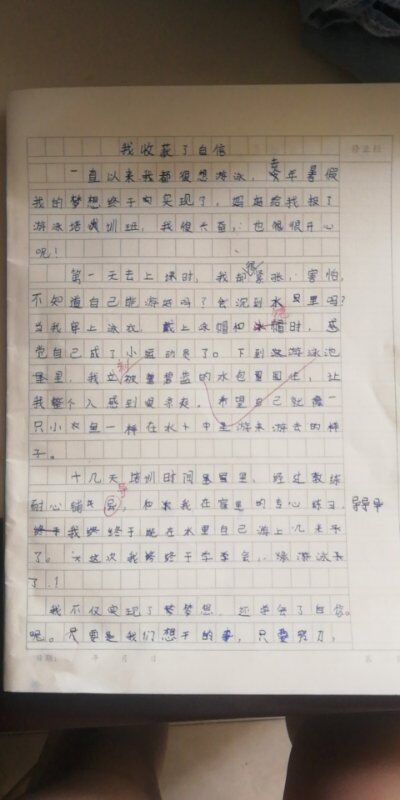 我收获了自信
一直以来我都很想游泳,今年暑假
我的梦想终于实现了,妈妈给我报了
游泳培训班,我很兴奋,也很开心
呢!
第一天去上课时,我都很紧张,害怕,
不知道自己能游好吗?会沉到水里吗?
当我穿上泳衣,戴上泳帽和泳帽时,感
觉自己成了小运动员了。下到游泳池
里,我立刻被碧蓝的水包围住,让
我整个人感到很凉爽。希望自己就像一
只小鱼一样在水中游来游去的样
子。
十几天培训时间里,经过教练
耐心辅导,和我在家里的专心练习,
我终于能在水里自己游上几米
了。这次我终于学会游泳
了!
我不仅实现了梦想,还学会了自信
呢。只要是我们想干的事,只要努力,
日期: 年 月 日